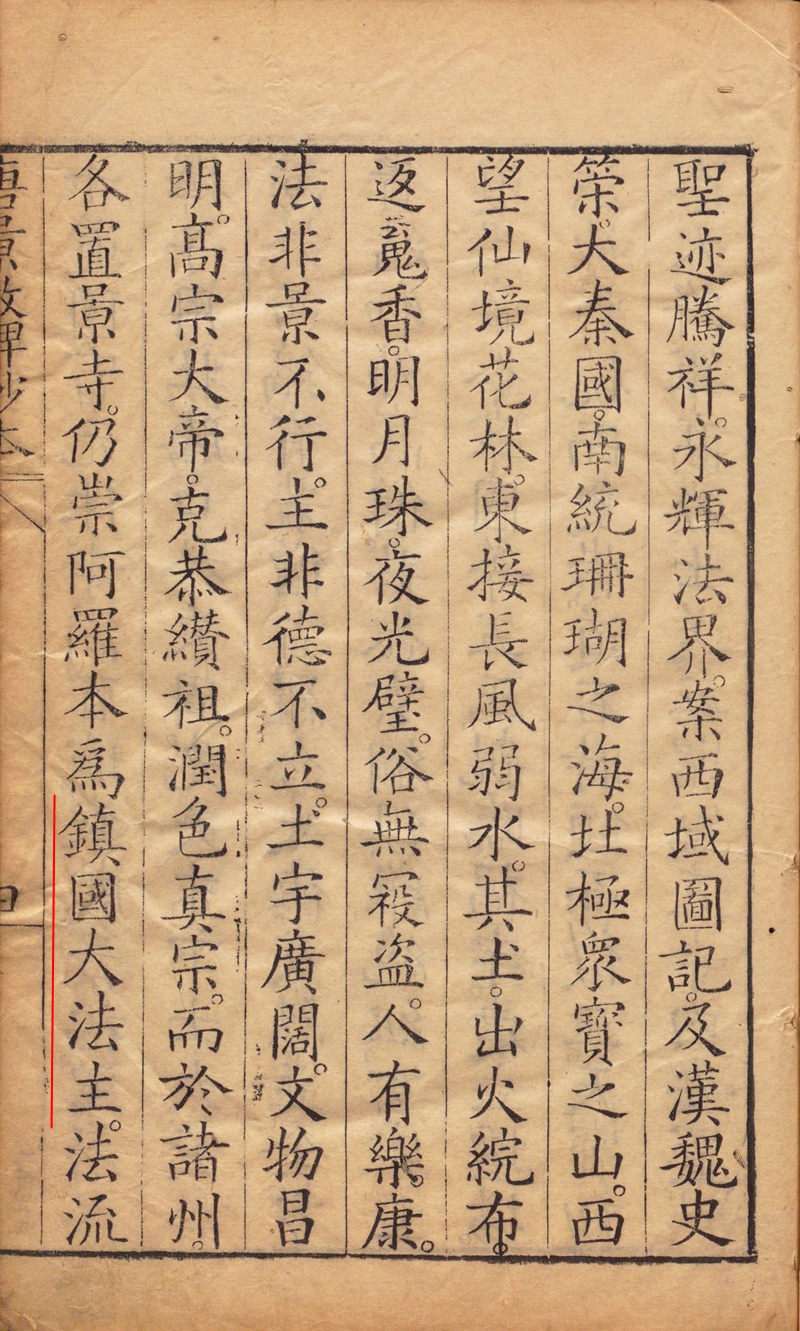 聖迹騰祥。永輝法界。案西域圖記。及漢魏史
筞。大秦國。南統珊瑚之海。北極衆寶之山。西
望仙境花林。東接長風弱水。其土。出火綄布。
返魂香。明月珠。夜光璧。俗無寇盗。人有樂。康。
法非景不行。主非德不立。土宇廣闊。文物昌
明。髙宗大帝。克恭纉祖。潤色真宗。而於諸州。
各置景寺。仍崇阿羅本爲鎮國大法主。法流